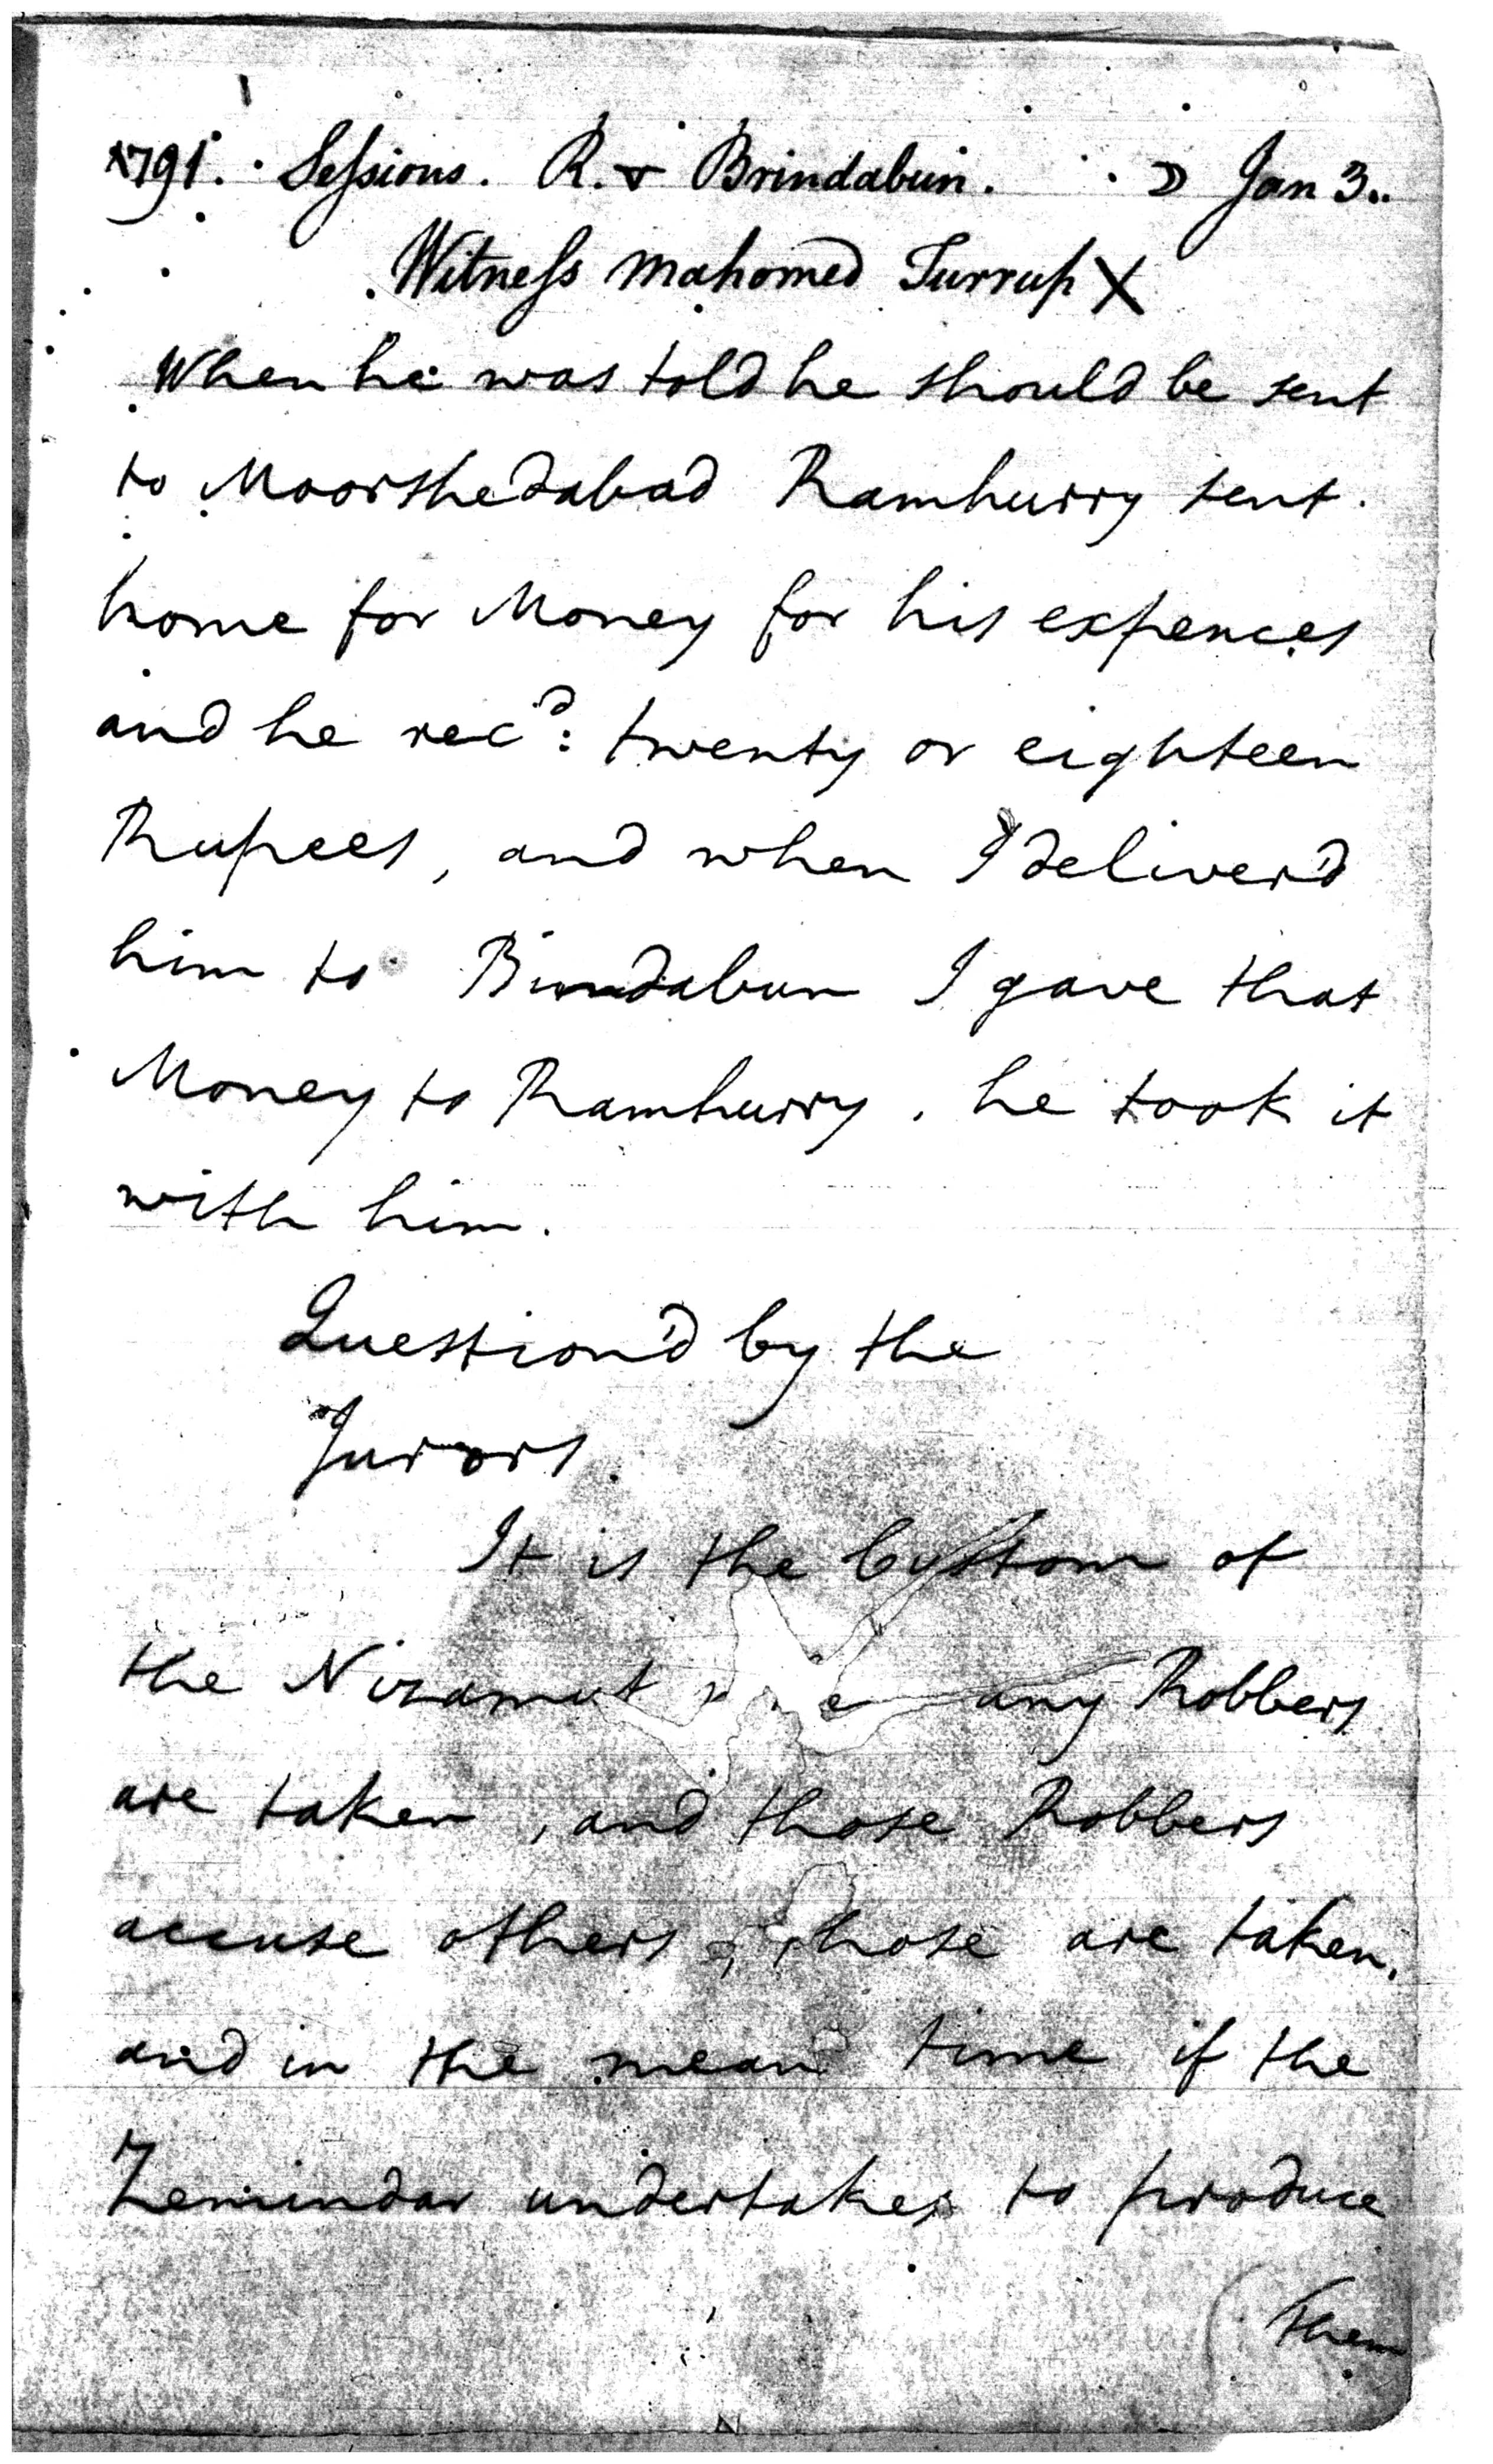 1791. Sessions. R. v Brindabun. ☽ Jan 3..
Witness Mahomed Turrup X
When he was told he should be sent
to Moorshedabad Ramhurry sent
home for Money for his expences
and he rec^d: twenty or eighteen
Rupees, and when I deliver'd
him to Bindabun I gave that
Money to Ramhurry, he took it
with him.
Question'd by the
Jurors.
It is the Custom of
the Nizamut any Robbers
are taken, and those Robbers
accuse others, those are taken,
and in the mean time if the
Zemindar undertakes to produce
them